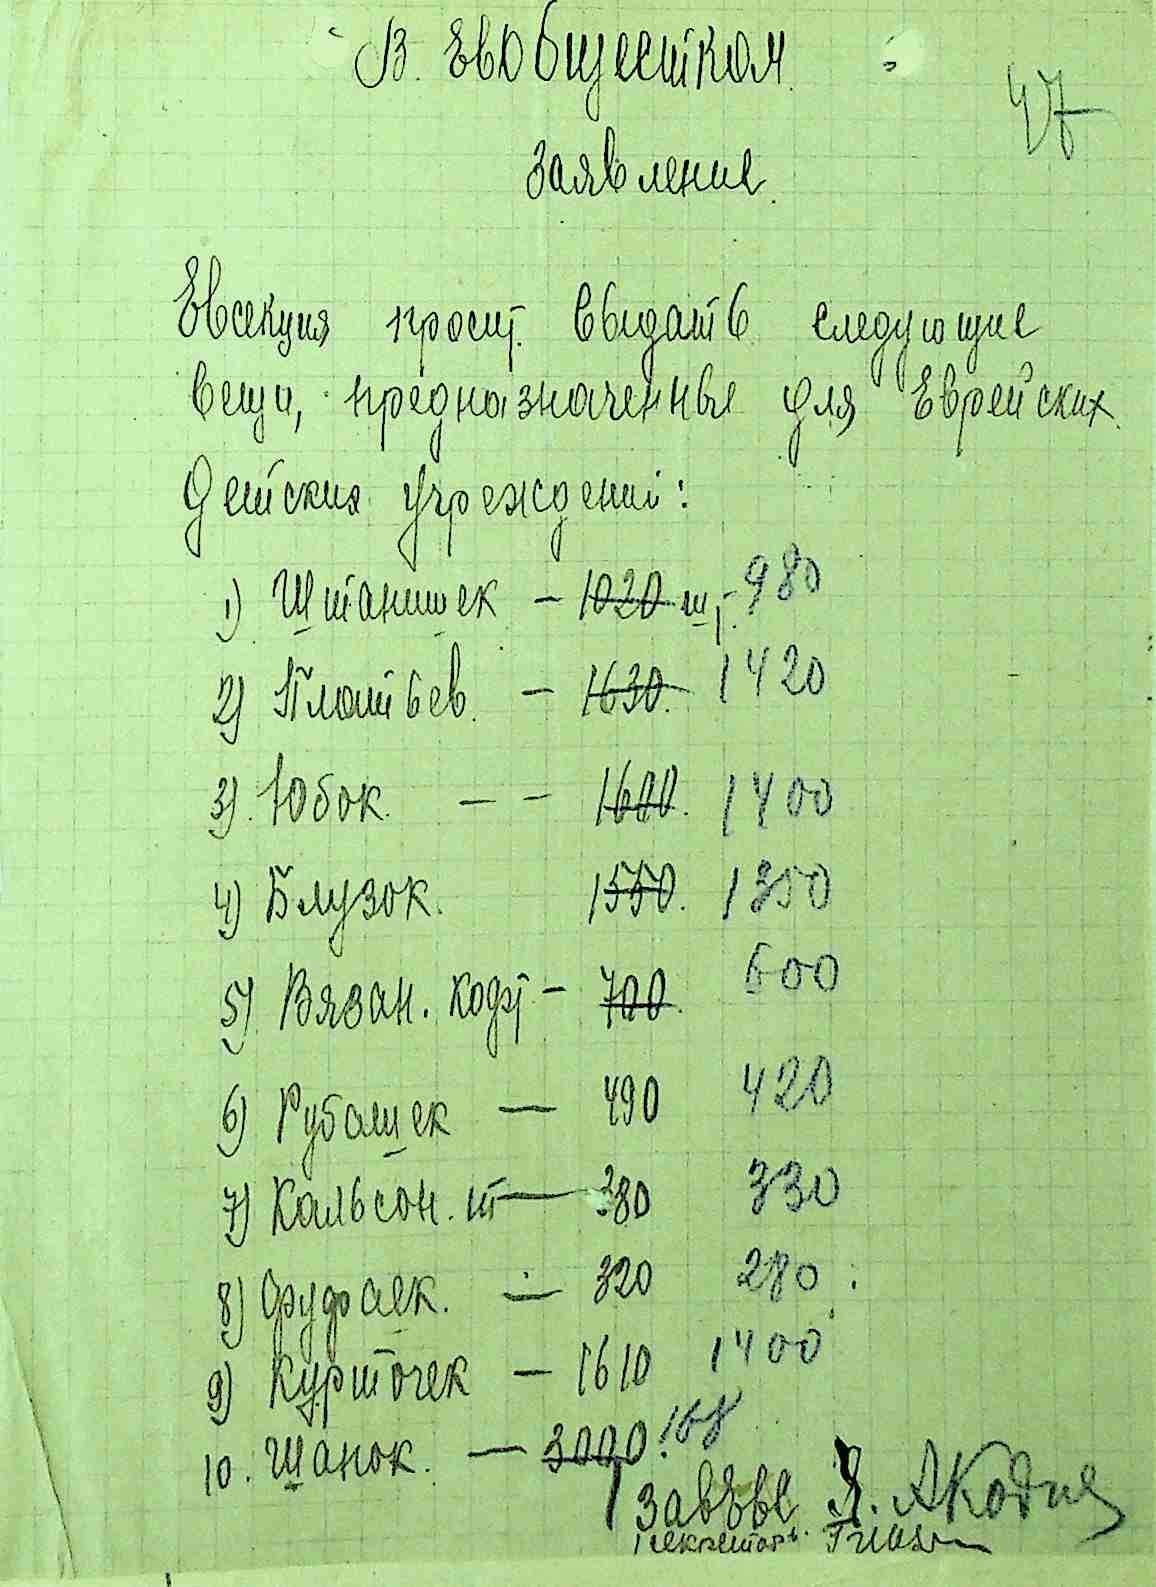 В Евобщестком
47
Заявление.
Евсекция просит выдать следующие
вещи, предназначенные для Еврейских
детских учреждений:
1) Штанишек – 1020 шт. 980
2) Платьев. – 1630. 1420
3) Юбок. – – 1600. 1400
4) Блузок. 1550. 1350
5) Вязан. кофт – 700. 600
6) Рубашек – 490 420
7) Кальсон. шт – 380 330
8) Фуфаек. – 320 280
9) Курточек – 1610 1400
10. Шапок. – 3000. 168
Зав
Секретарь